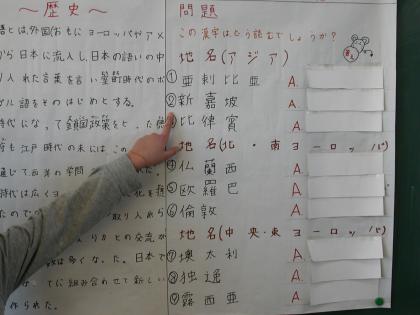 ～歴史～
語とは、外国(おもにヨーロッパやアメ
から日本に流入し、日本の語いの中
り入れた言葉を言い室町時代のポ
ガル語をそのはじめとする。
時代になって鎖国政策をと
も江戸時代の末には、この
通じて西洋の学問
時代は広くヨ
化を積
取り入れら
との交流が
は多くなった。日本で
に組み合わせて新しい
作られた。
問題
この漢字はどう読むでしょうか？
答え
地名(アジア)
①亜剌比亜 A.
②新嘉坡 A.
比律賓 A.
地名(北・南ヨーロッパ)
④仏蘭西 A.
⑤欧羅巴 A.
⑥倫敦 A.
地名(中央・東ヨーロッパ)
⑦墺太利 A.
⑧独逸 A.
⑨露西亜 A.